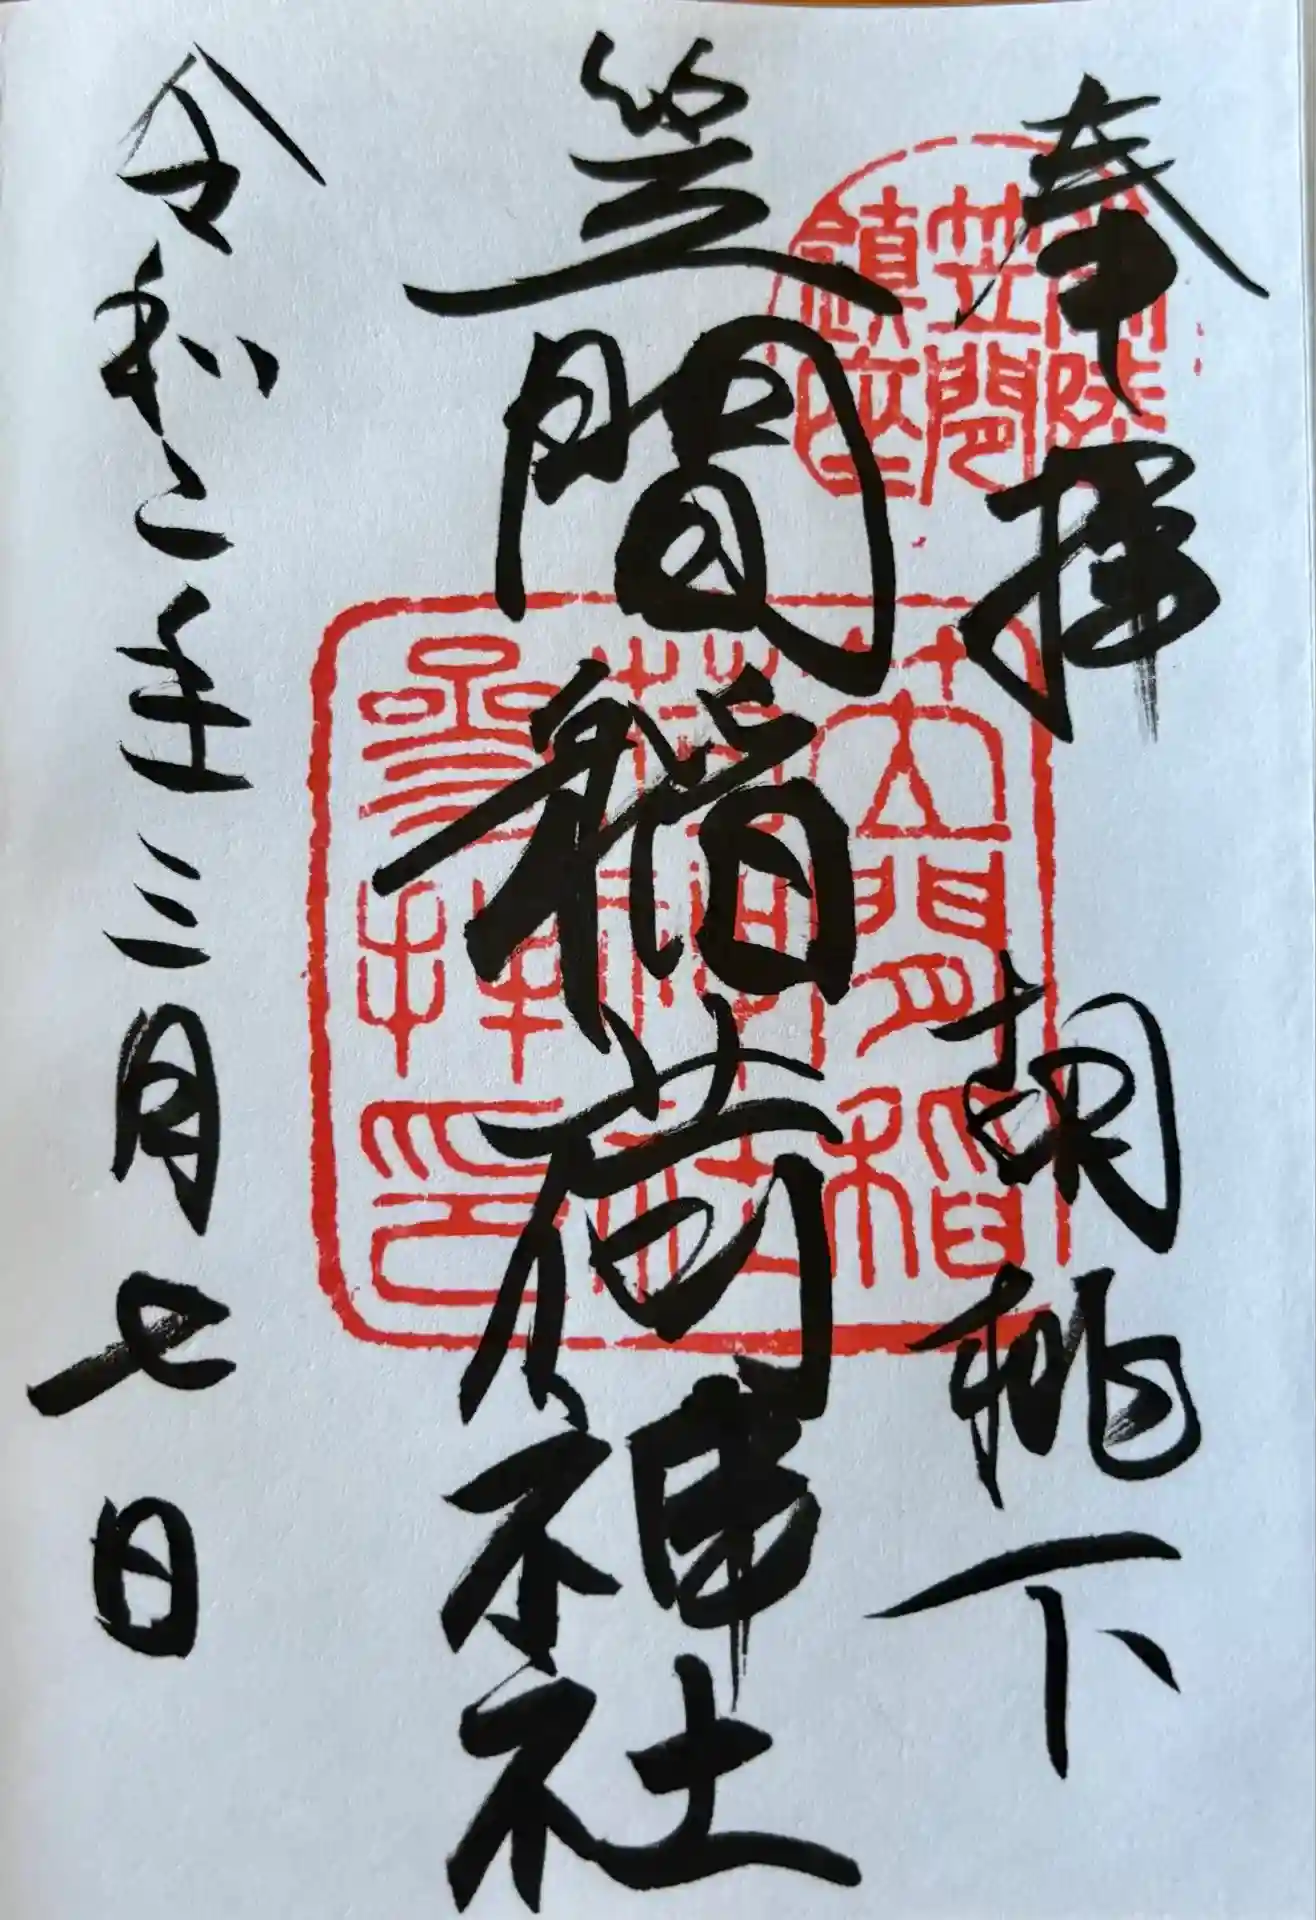 奉拝 胡桃下
常陸
笠間
鎮座
笠間稲荷神社
笠間稲
荷神社
参拝印
令和二年三月七日